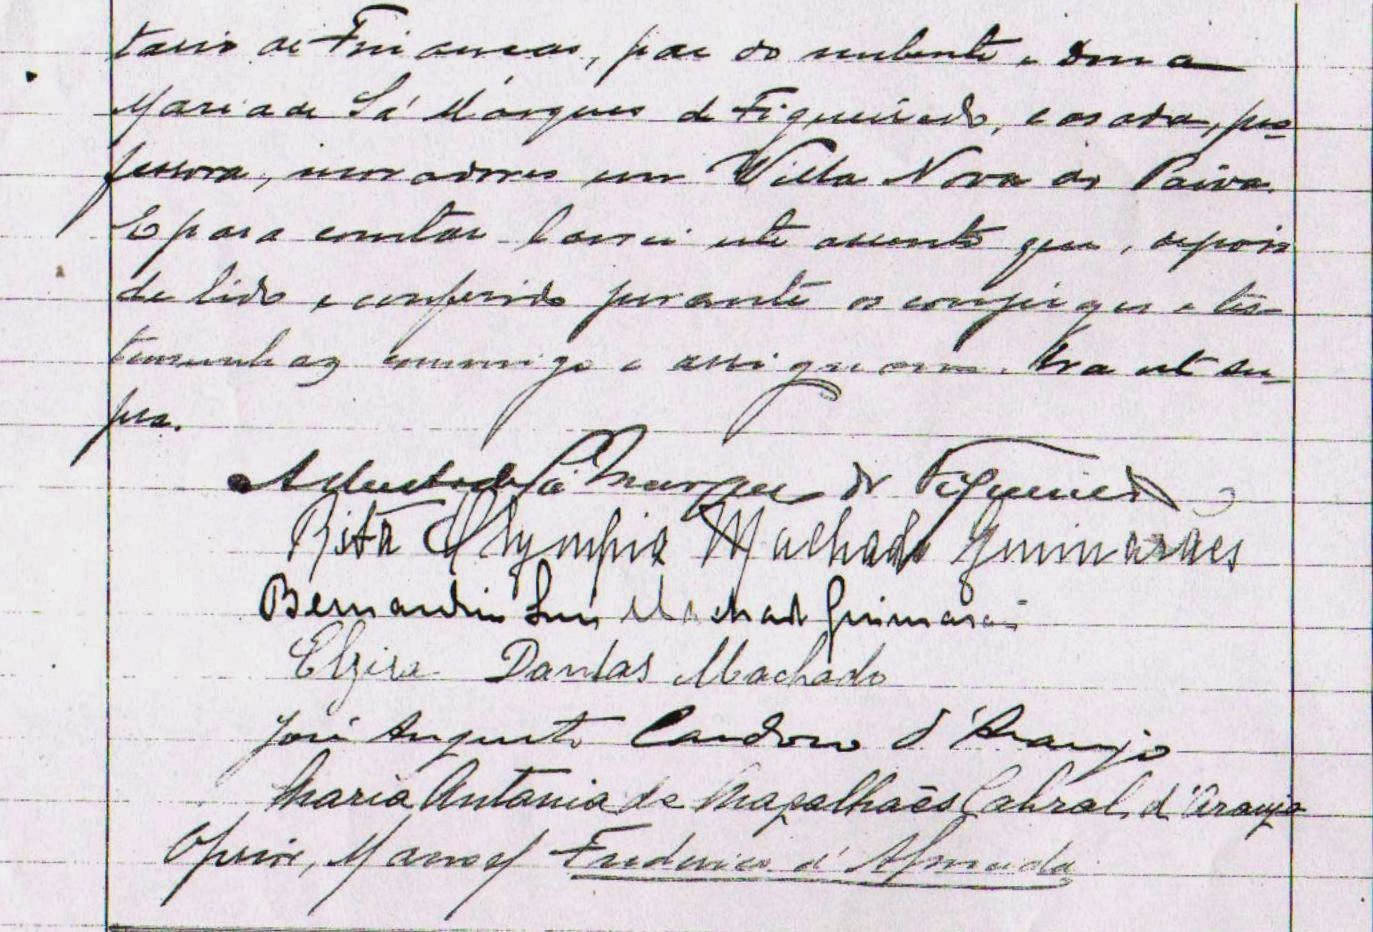 tario de Finanças, pae do nubente e dona
Maria de Sá Marques de Figueiredo, casada, pro-
fessora, moradores em Villa Nova de Paiva.
E para constar lavrei este assento que, depois
de lido e conferido perante os conjuges e tes-
temunhas commigo o assignam. Era ut su-
pra.
de Sá Marques de Figueiredo
Rita Olympia Machado Guimarães
Bernardino Luis Machado Guimarães
Elzira Dantas Machado
José Augusto Cardoso d'Araujo
Maria Antonia de Magalhães Cabral d'Araujo
O prior, Manoel Frederico d'Almeida